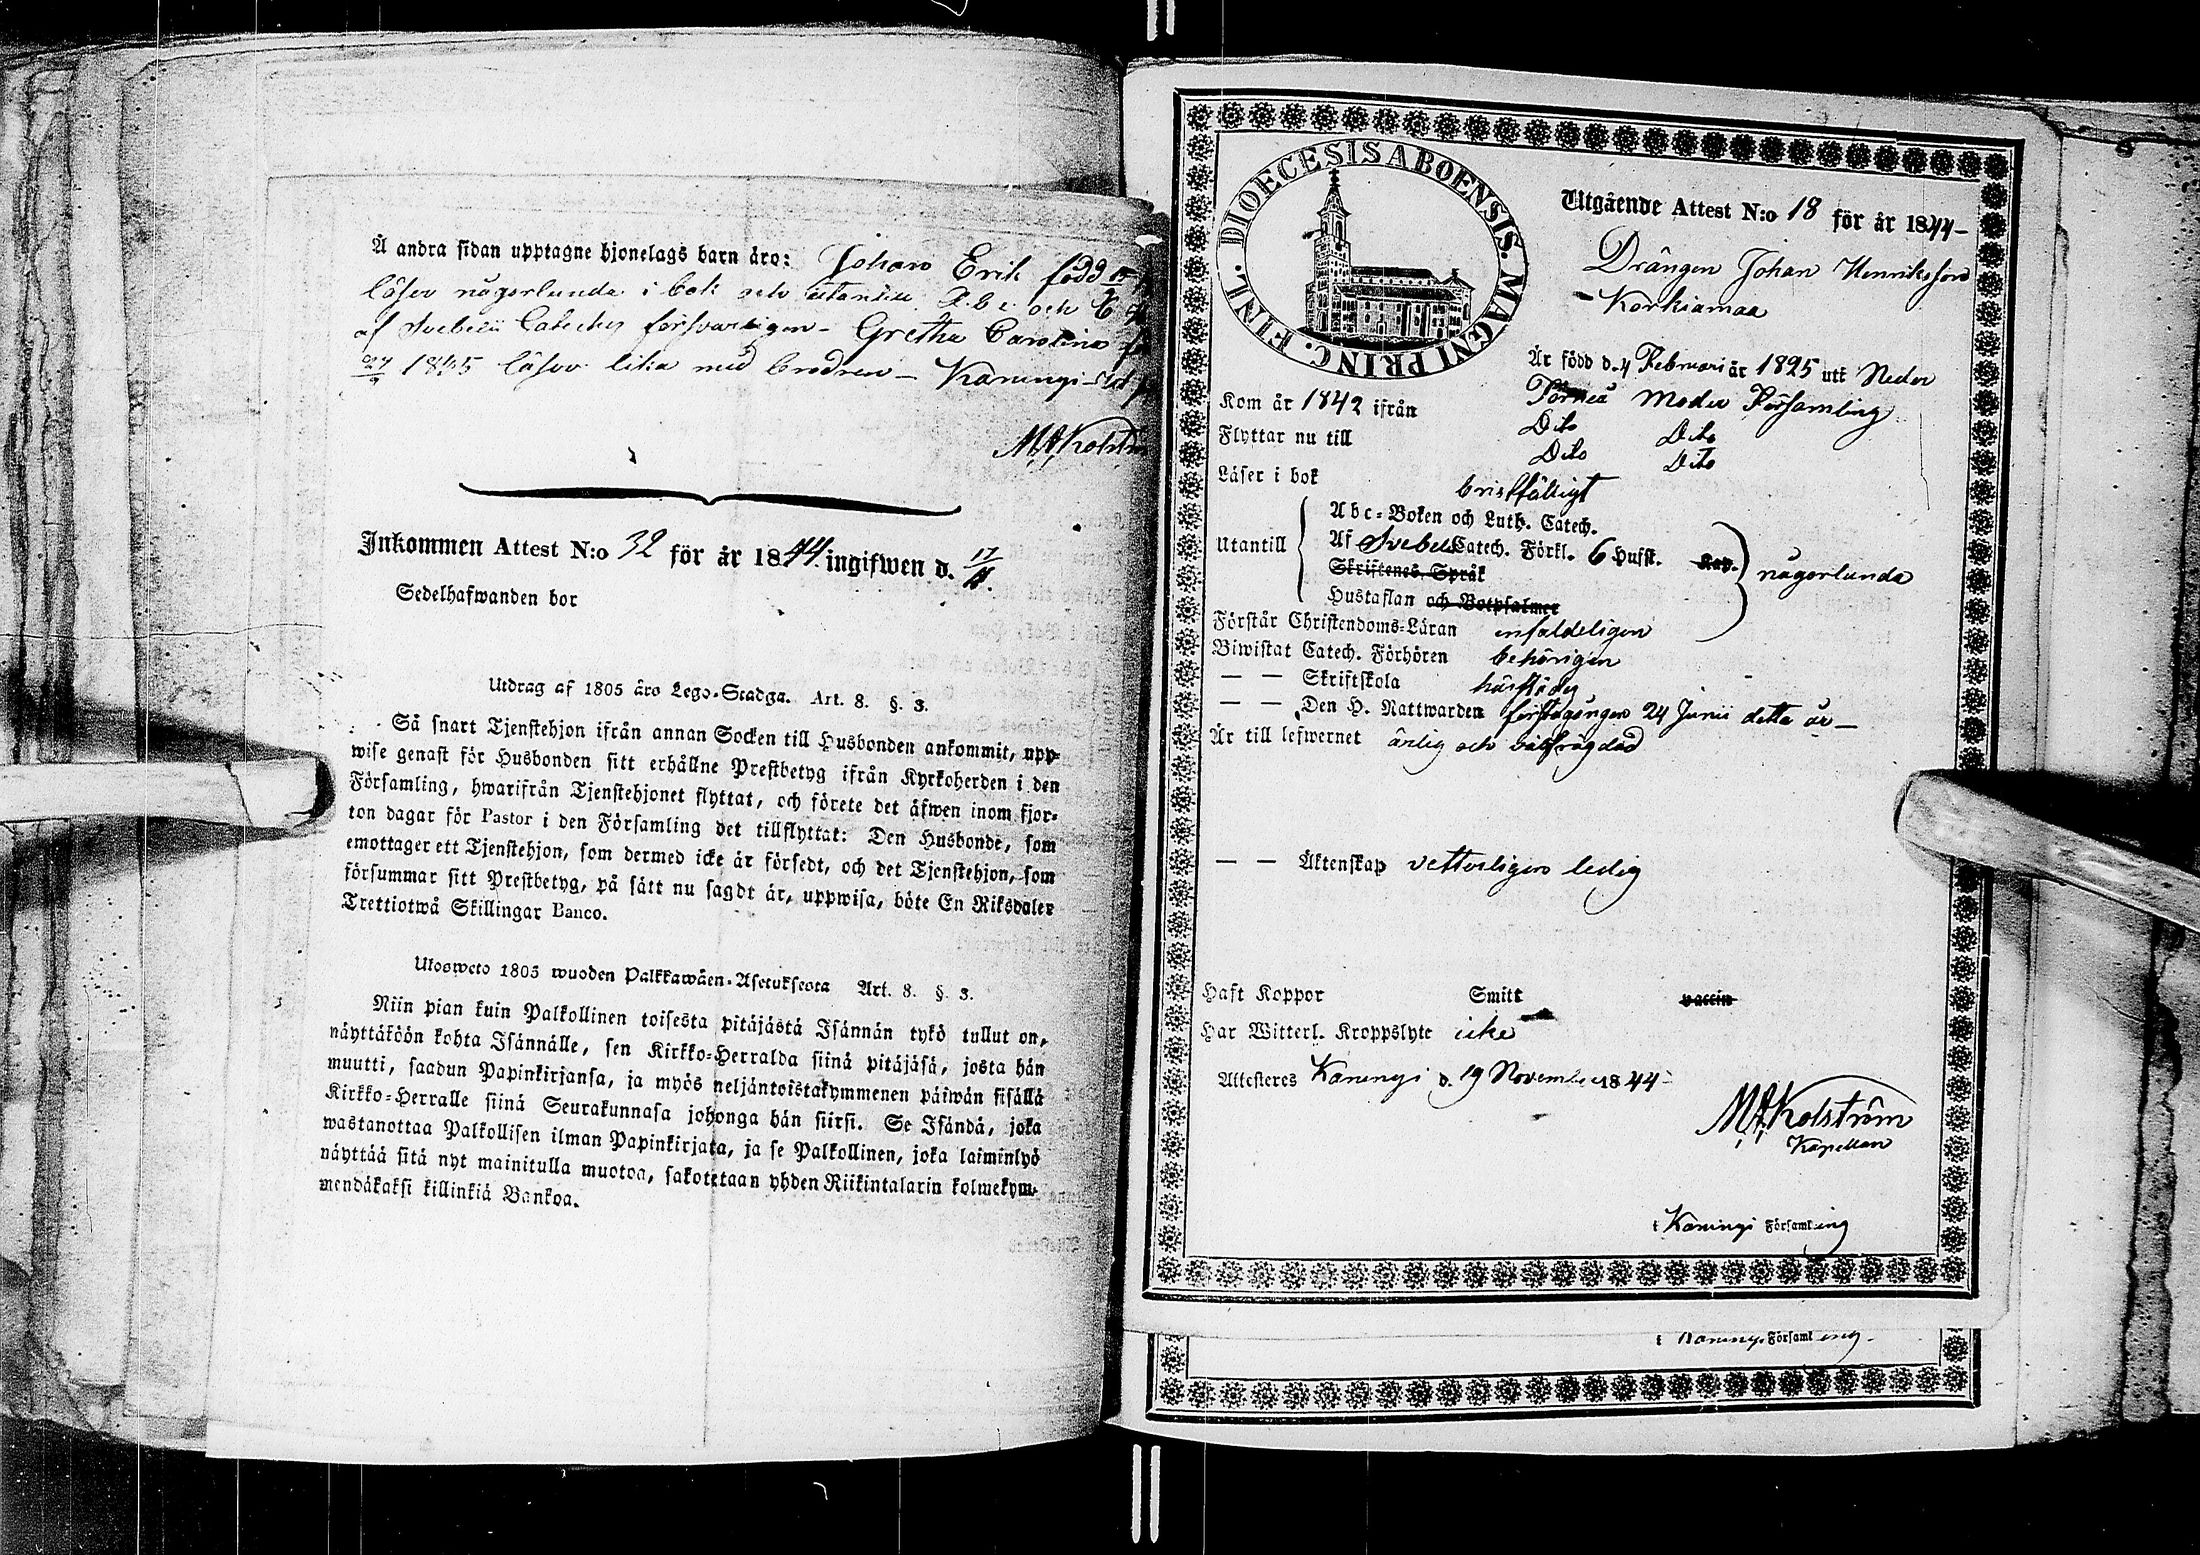 Å andra sidan upptagne hjonelags barn äro: Johan Erik född
läser någorlunda i bok och utantill A.b.c. och 6
af Svebelii Cateches försvarligen – Gretha Carolina
27/9 1835 läser lika med brodren – Karungi
M A Kolström
Inkommen Attest N:o 32 för år 1844 ingifwen d. 17/11.
Sedelhafwanden bor
Utdrag af 1805 års Lego-Stadga. Art. 8. §. 3.
Så snart Tjenstehjon ifrån annan Socken till Husbonden ankommit, upp-
wise genast för Husbonden sitt erhållne Prestbetyg ifrån Kyrkoherden i den
Församling, hwarifrån Tjenstehjonet flyttat, och förete det äfwen inom fjor-
ton dagar för Pastor i den Församling det tillflyttat: Den Husbonde, som
emottager ett Tjenstehjon, som dermed icke är försedt, och det Tjenstehjon, som
försummar sitt Prestbetyg, på sätt nu sagdt är, uppwisa, böte En Riksdaler
Trettiotwå Skillingar Banco.
Ulosweto 1805 wuoden Palkkawäen-Asetuksesta Art. 8. §. 3.
Niin pian kuin Palkollinen toisesta pitäjästä Isännän tykö tullut on,
näyttäköön kohta Isännälle, sen Kirkko-Herralda siinä pitäjäsä, josta hän
muutti, saadun Papinkirjansa, ja myös neljäntoistakymmenen päiwän sisällä
Kirkko-Herralle siinä Seurakunnasa johonga hän siirsi. Se Isändä, joka
wastanottaa Palkollisen ilman Papinkirjata, ja se Palkollinen, joka laiminlyö
näyttää sitä nyt mainitulla muotoa, sakotetaan yhden Riikintalarin kolmekym-
mendäkaksi killinkiä Bankoa.
DIOECESIS ABOENSIS. MAGNI PRINC. FINL.
Utgående Attest N:o 18 för år 1844 –
Drängen Johan Henriksson
– Korkiamaa
Är född d. 4 Februari år 1825 utt Neder
Torneå Moder Församling
Kom år 1842 ifrån Dito Dito
Flyttar nu till Dito Dito
Läser i bok bristfälligt
Abc-Boken och Luth. Catech.
Utantill Af Svebel Catech. Förkl. 6 Hufst. Kap. någorlunda
Skriftenes Språk
Hustaflan och Botpsalmer
Förstår Christendoms-Läran enfaldeligen
Biwistat Catech. Förhören behörigen
— — Skriftskola härstädes
— — Den H. Nattwarden förstagången 24 Junii detta år –
Är till lefwernet ärlig och välfrägdad
— — Äktenskap vetterligen ledig
Haft Koppor Smitt vaccin
Har Witterl. Kroppslyte icke
Attesteres Karungi d. 19 November 1844 –
M A Kolström
Kapellan
i Karungi Församling
i Karungi Församling –